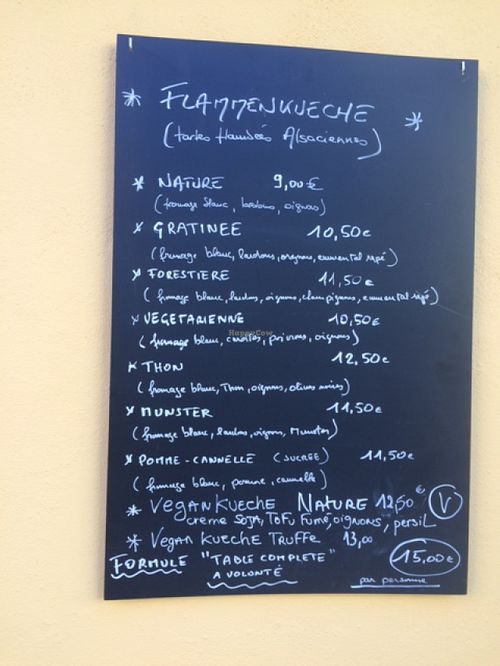 * FLAMMENKUECHE *
(tartes flambées Alsaciennes)
* NATURE 9,00€
(fromage blanc, lardons, oignons)
* GRATINEE 10,50€
(fromage blanc, lardons, oignons, emmental rapé)
* FORESTIERE 11,50€
(fromage blanc, lardons, oignons, champignons, emmental rapé)
* VEGETARIENNE 10,50€
(fromage blanc, carottes, poivrons, oignons)
* THON 12,50€
(fromage blanc, Thon, oignons, olives noires)
* MUNSTER 11,50€
(fromage blanc, lardons, oignons, Munster)
* POMME-CANNELLE (SUCREE) 11,50€
(fromage blanc, pomme, cannelle)
* VEGANKUECHE NATURE 12,50€ V
creme SOJA, TOFU FUMÉ, OIGNONS, PERSIL
* VEGAN KUECHE TRUFFE 13,00
FORMULE "TABLE COMPLETE" 15,00€
A VOLONTÉ par personne
HappyCow